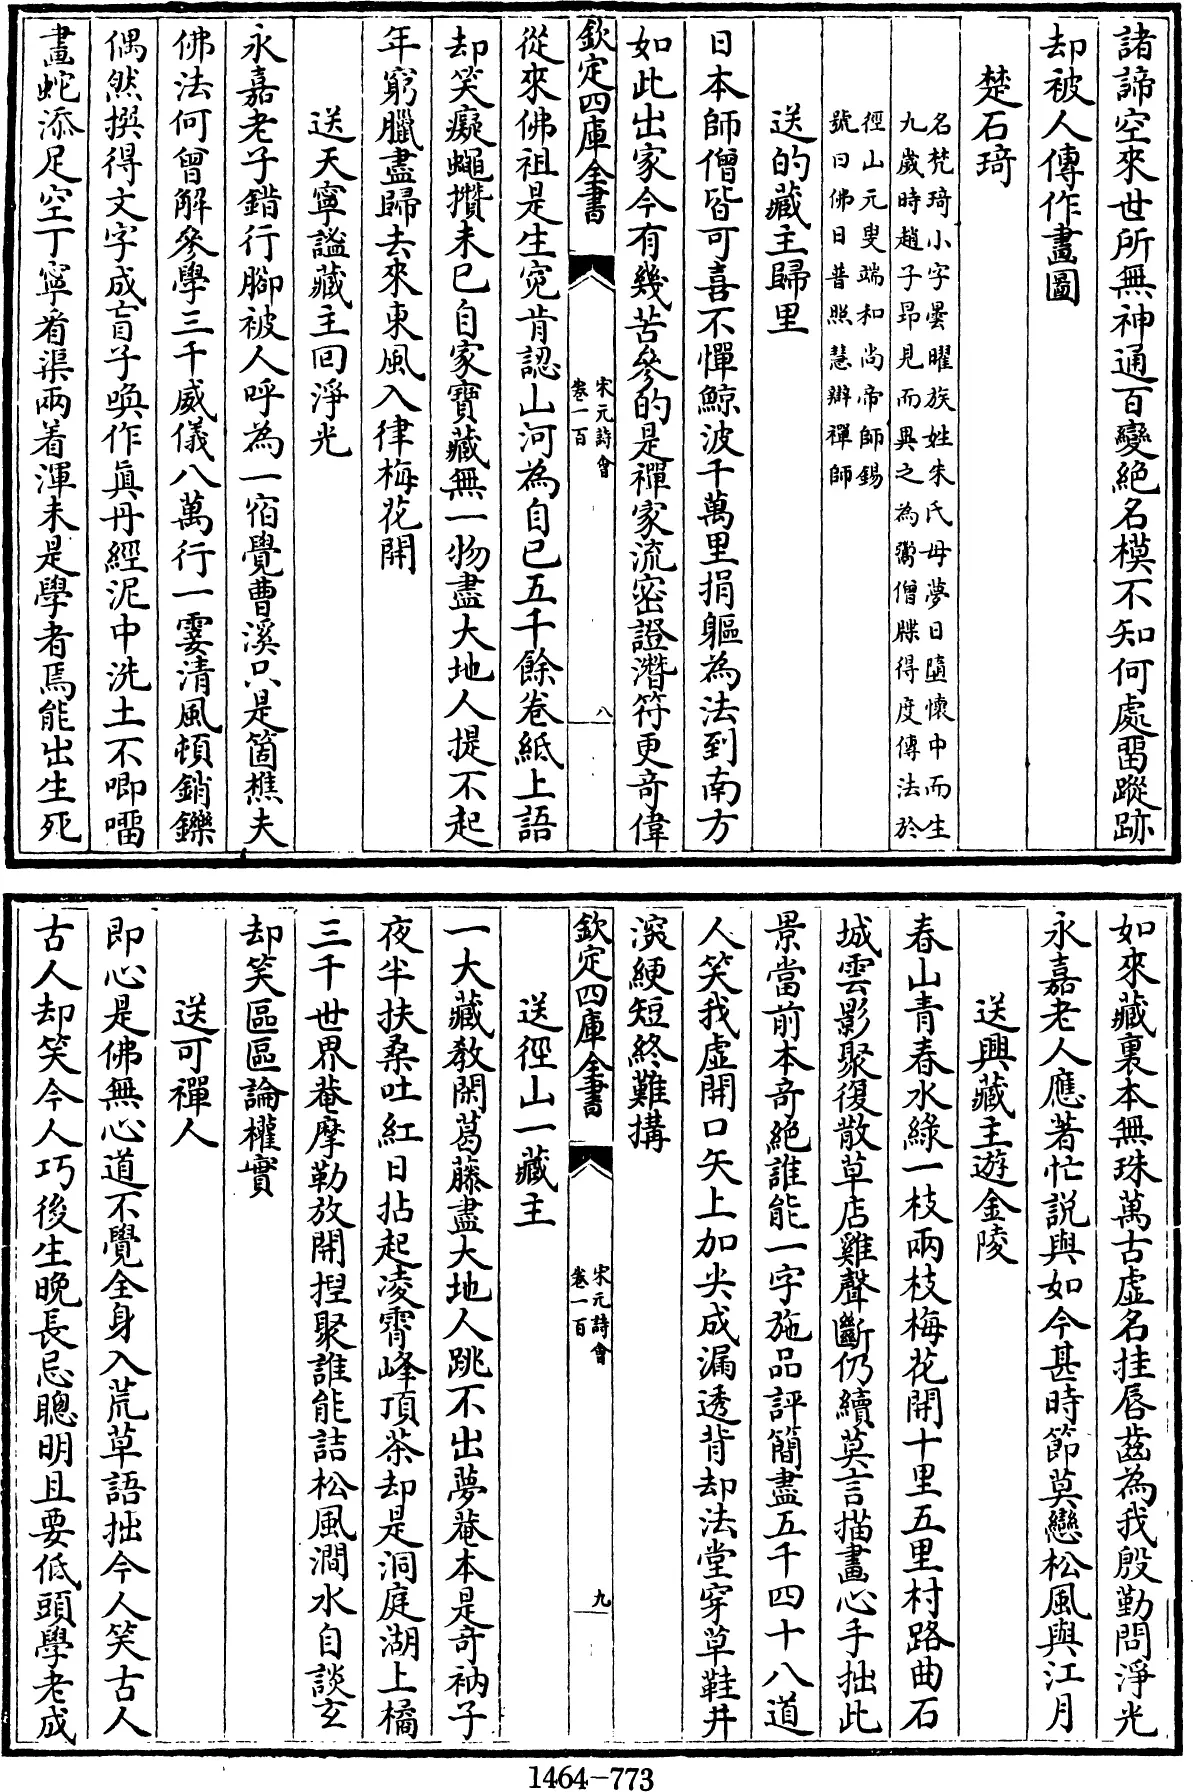 諸諦空來世所無神通百變絶名模不知何處畱蹤跡
却被人傳作畫圖
楚石琦
名梵琦小字曇曜族姓朱氏母夢日墮懷中而生
九歲時趙子昂見而異之為鬻僧牒得度傳法於
徑山元叟端和尚帝師錫
號曰佛日普照慧辯禪師
送的藏主歸里
日本師僧皆可喜不憚鯨波千萬里捐軀為法到南方
如此出家今有幾苦參的是禪家流密證潛符更奇偉
欽定四庫全書
宋元詩會
卷一百
八
從來佛祖是生寃肯認山河為自己五千餘卷紙上語
却笑癡蠅攢未已自家寶藏無一物盡大地人提不起
年窮臘盡歸去來東風入律梅花開
送天寧謐藏主囘淨光
永嘉老子錯行腳被人呼為一宿覺曹溪只是箇樵夫
佛法何曾解參學三千威儀八萬行一霎清風頓銷鑠
偶然撰得文字成盲子喚作眞丹經泥中洗土不唧㽞
畫蛇添足空丁寧看渠兩着渾未是學者焉能出生死
如來藏裏本無珠萬古虛名挂唇齒為我殷勤問淨光
永嘉老人應著忙説與如今甚時節莫戀松風與江月
送興藏主遊金陵
春山青春水綠一枝兩枝梅花開十里五里村路曲石
城雲影聚復散草店雞聲斷仍續莫言描畫心手拙此
景當前本奇絶誰能一字施品評簡盡五千四十八道
人笑我虛開口矢上加尖成漏透背却法堂穿草鞋井
深綆短終難搆
欽定四庫全書
宋元詩會
卷一百
九
送徑山一藏主
一大藏教閑葛藤盡大地人跳不出夢菴本是奇衲子
夜半扶桑吐紅日拈起凌霄峰頂茶却是洞庭湖上橘
三千世界菴摩勒放開捏聚誰能詰松風澗水自談玄
却笑區區論權實
送可禪人
即心是佛無心道不覺全身入荒草語拙今人笑古人
古人却笑今人巧後生晩長忌聰明且要低頭學老成
1464-773